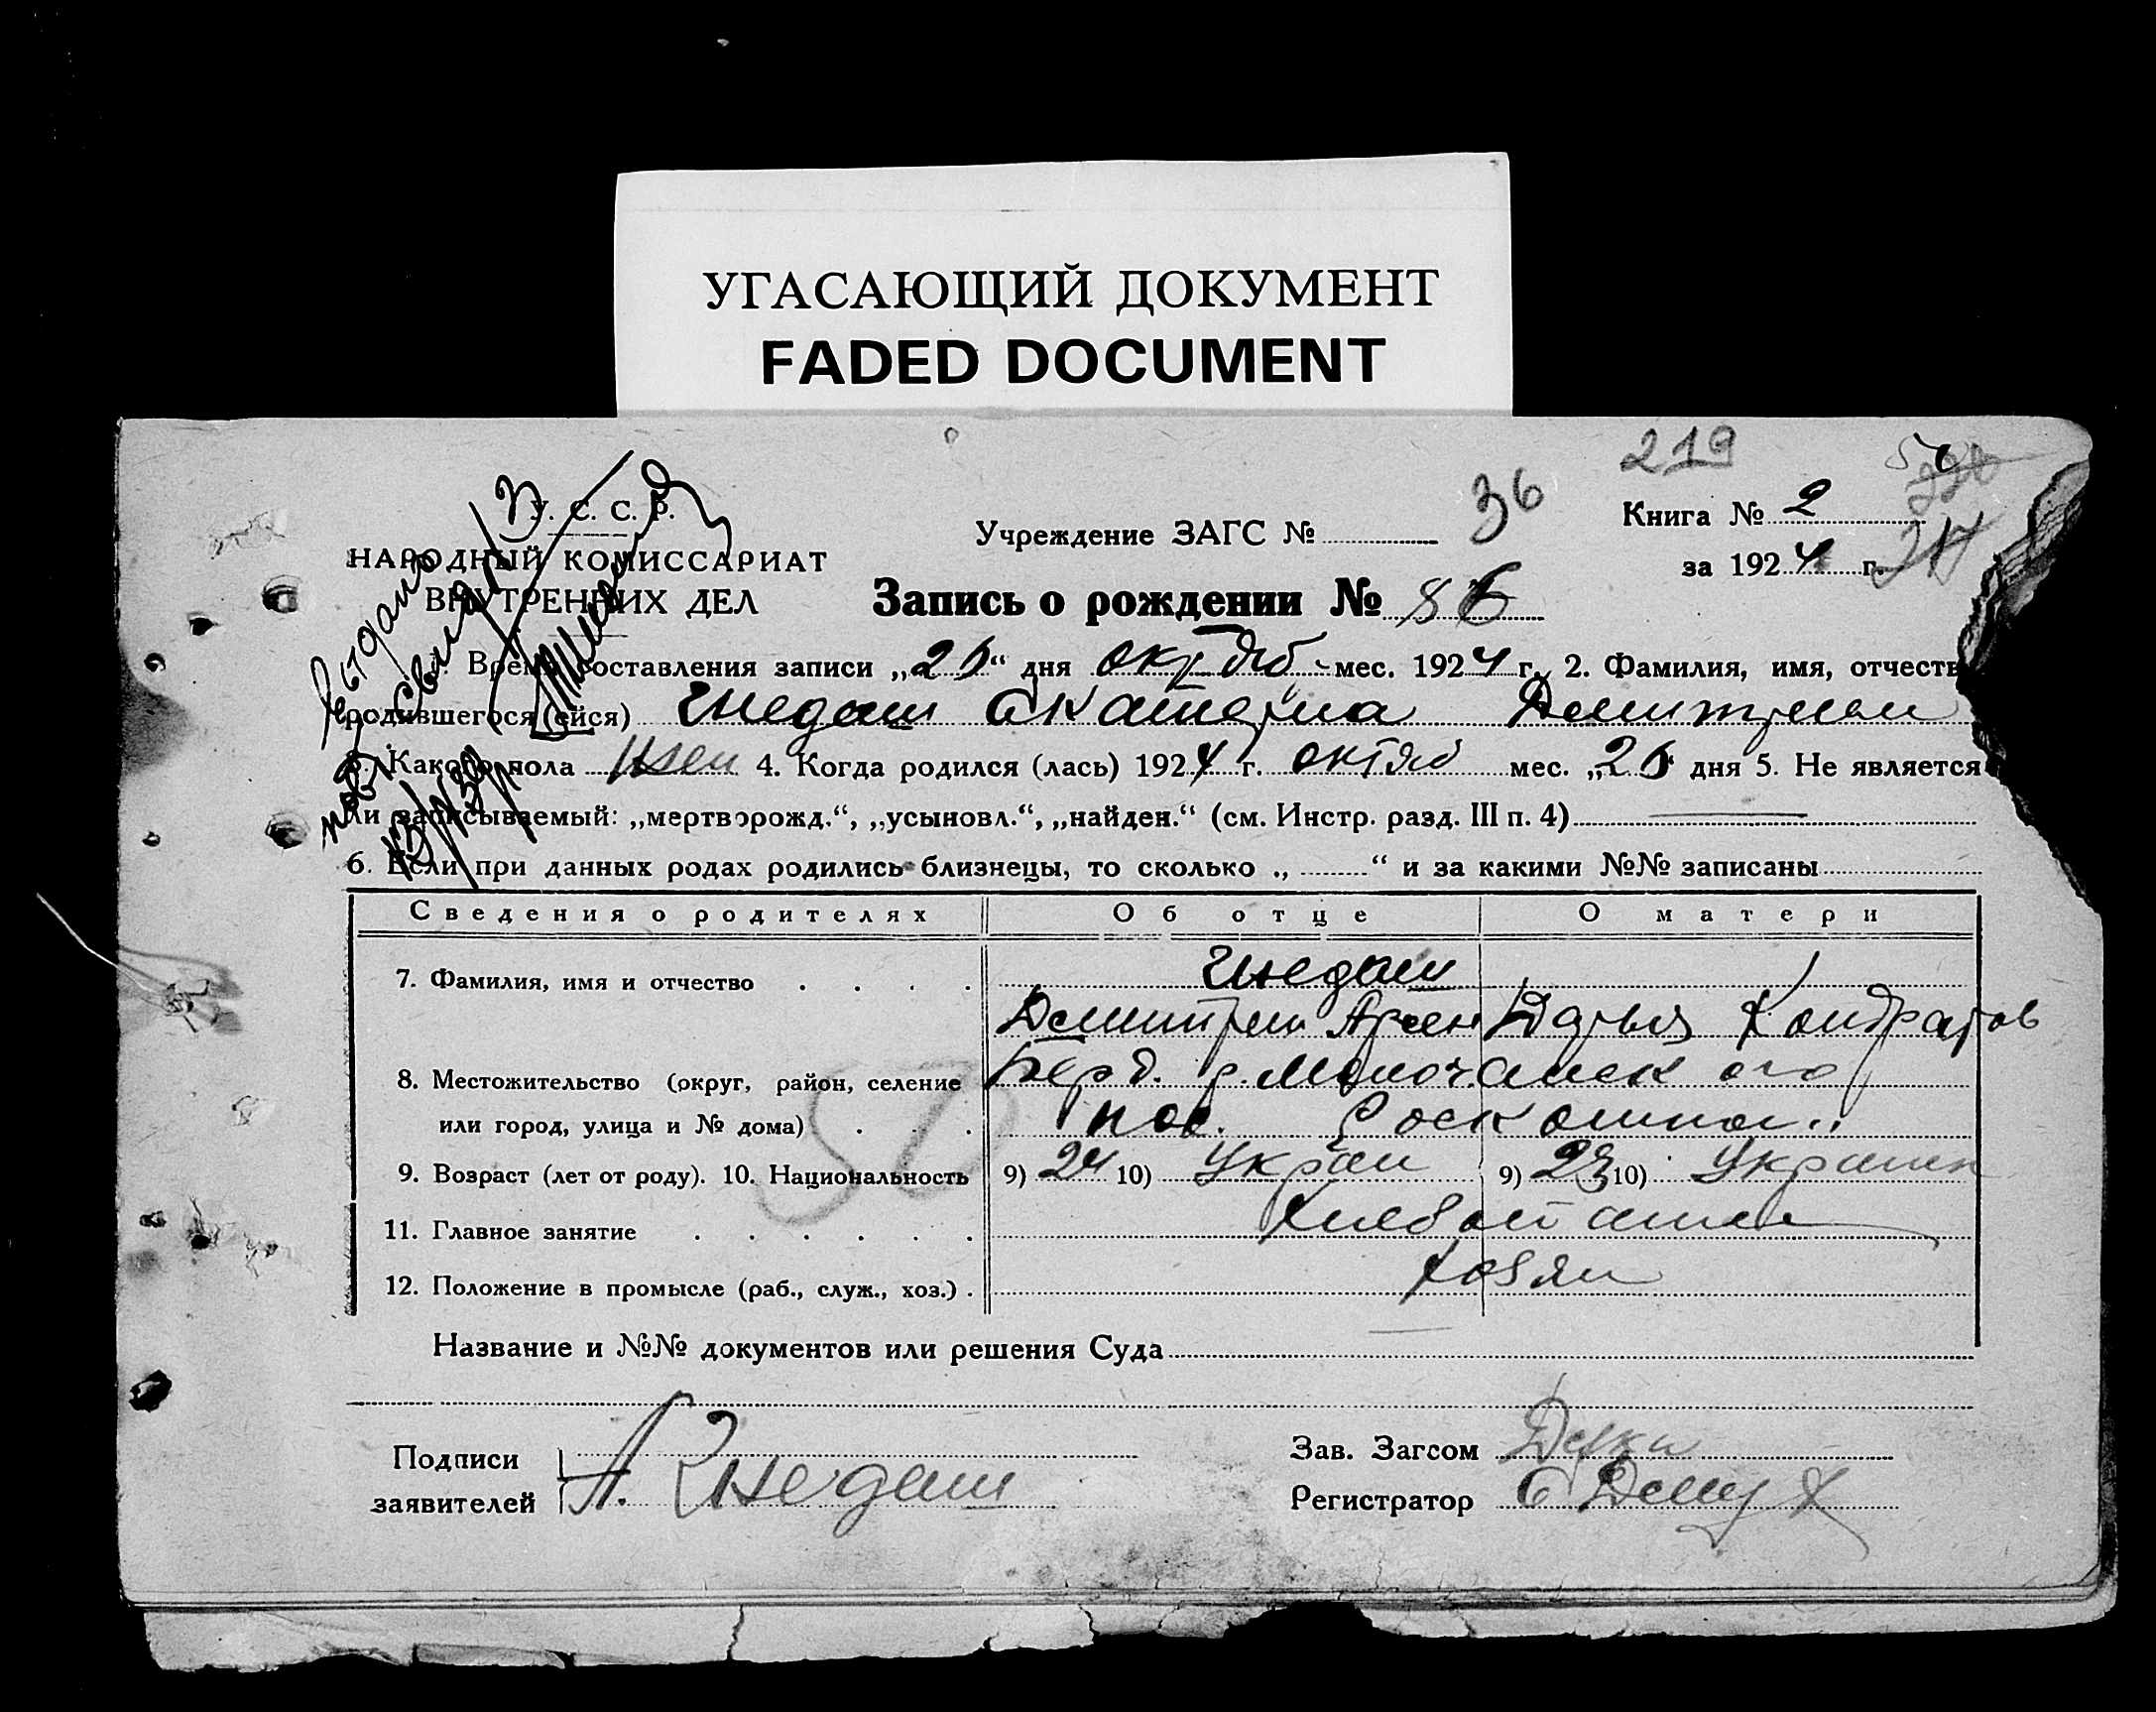 УГАСАЮЩИЙ ДОКУМЕНТ
FADED DOCUMENT
219
36
У. С. С. Р.
НАРОДНЫЙ КОМИССАРИАТ
ВНУТРЕННИХ ДЕЛ
Учреждение ЗАГС №
Книга № 2
за 1924 г.
Запись о рождении № 86
Время составления записи „25“ дня октяб. мес. 1924 г. 2. Фамилия, имя, отчеств
родившегося (ейся) Гнедаш Екатерина Дмитриевн
3. Какого пола Жен 4. Когда родился (лась) 1924 г. октяб мес. „25“ дня 5. Не является
ли записываемый: „мертворожд.“, „усыновл.“, „найден.“ (см. Инстр. разд. III п. 4)
6. Если при данных родах родились близнецы, то сколько „ “ и за какими №№ записаны
Сведения о родителях Об отце О матери
7. Фамилия, имя и отчество Гнедаш
Дмитрий Арсен Дарья Кондратов
8. Местожительство (округ, район, селение Берд. р. Молочанск ого
или город, улица и № дома) пос. Роскошный
9. Возраст (лет от роду). 10. Национальность 9) 24 10) Украи 9) 23 10) Украин
11. Главное занятие Хлебопаш
12. Положение в промысле (раб., служ., хоз.) хозяи
Название и №№ документов или решения Суда
Подписи
заявителей А. Гнедаш
Зав. Загсом
Регистратор